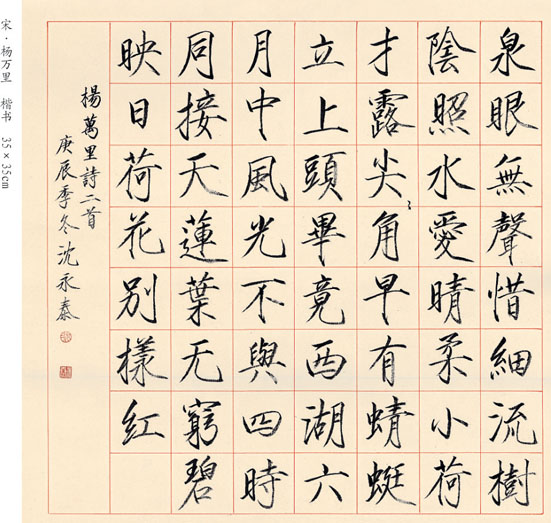 泉眼無聲惜細流樹
陰照水愛晴柔小荷
才露尖〻角早有蜻蜓
立上頭畢竟西湖六
月中風光不與四時
同接天蓮葉无窮碧
映日荷花別樣紅
楊萬里詩二首
庚辰季冬沈永泰
宋·杨万里 楷书 35×35cm